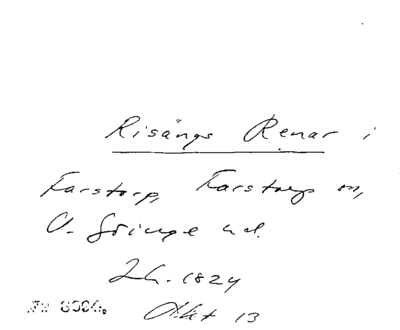 Risängs Renar i
Farstorp, Farstorps sn,
V. Göinge hd.
Lh. 1824
Akt 13